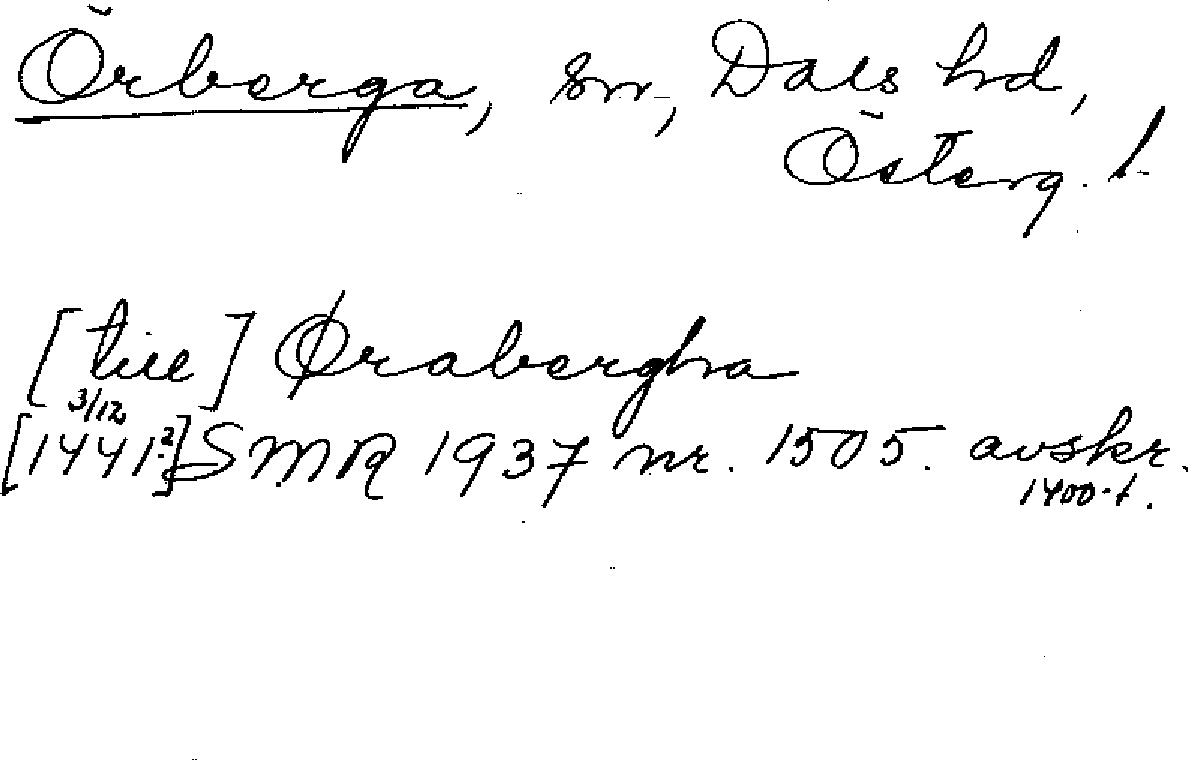 Örberga, sn, Dals hd,
Österg. l.
[till] Ørabergha
3/12
[1441?] SMR 1937 nr. 1505. avskr.
1400-t.